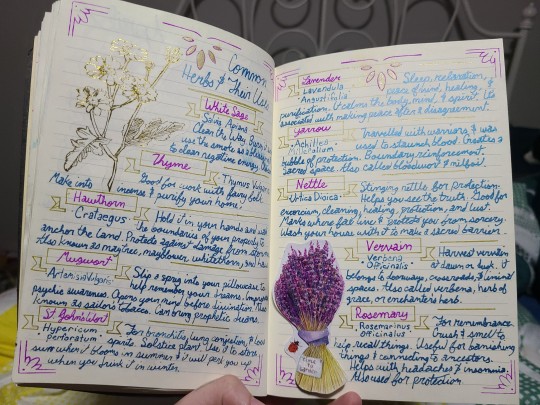 Common
Herbs & Their Uses
White Sage
Salvia Apiana
Clean the Way. Burn
use the smoke as a
to clear negative energy.
Thyme
Thymus Vulgaris
Good for work with faery folk.
Make into incense & purify your home.
Hawthorn
Crataegus
Hold it in your hands and walk
the boundaries of your property to
anchor the land. Protects against damage from storms
Also known as maytree, mayflower, whitethorn, and haw
Mugwort
Artemisia Vulgaris
Slip a sprig into your pillowcase to
help remember your dreams.
psychic awareness. Opens your mind before divination.
known as sailors tobacco. Can bring prophetic dreams.
St John's Wort
Hypericum
perforatum
For bronchitis, lung congestion, &
spirits. Solstice plant. Use it to store
sun when it blooms in summer & it will pep you up
when you drink it in winter.
Lavender
Lavandula
Angustifolia
Sleep, relaxation,
peace of mind, healing,
purification. It calms the body, mind, & spirit. Is
associated with making peace after a disagreement.
Yarrow
Achillea
Millefolium
Travelled with warriors & was
used to staunch blood. Creates a
bubble of protection. Boundary reinforcement.
Sacred space. Also called bloodwort & milfoil.
Nettle
Urtica Dioica
Stinging nettle for protection.
Helps you see the truth. Good for
exorcism, cleaning, healing, protection, and lust.
Marks where fae live & protects you from sorcery.
Wash your house with it to make a sacred barrier.
Vervain
Verbena
Officinalis
Harvest vervain
at dawn or dusk. It
belongs to doorway, crossroads, & liminal
spaces. Also called verbena, herb of
grace, or enchanter's herb.
Rosemary
Rosemarinus
Officinalus
For remembrance.
Crush & smell to
help recall things. Useful for banishing
things & connecting to ancestors.
Helps with headaches & insomnia.
Also used for protection.
TIME
to
GARDEN